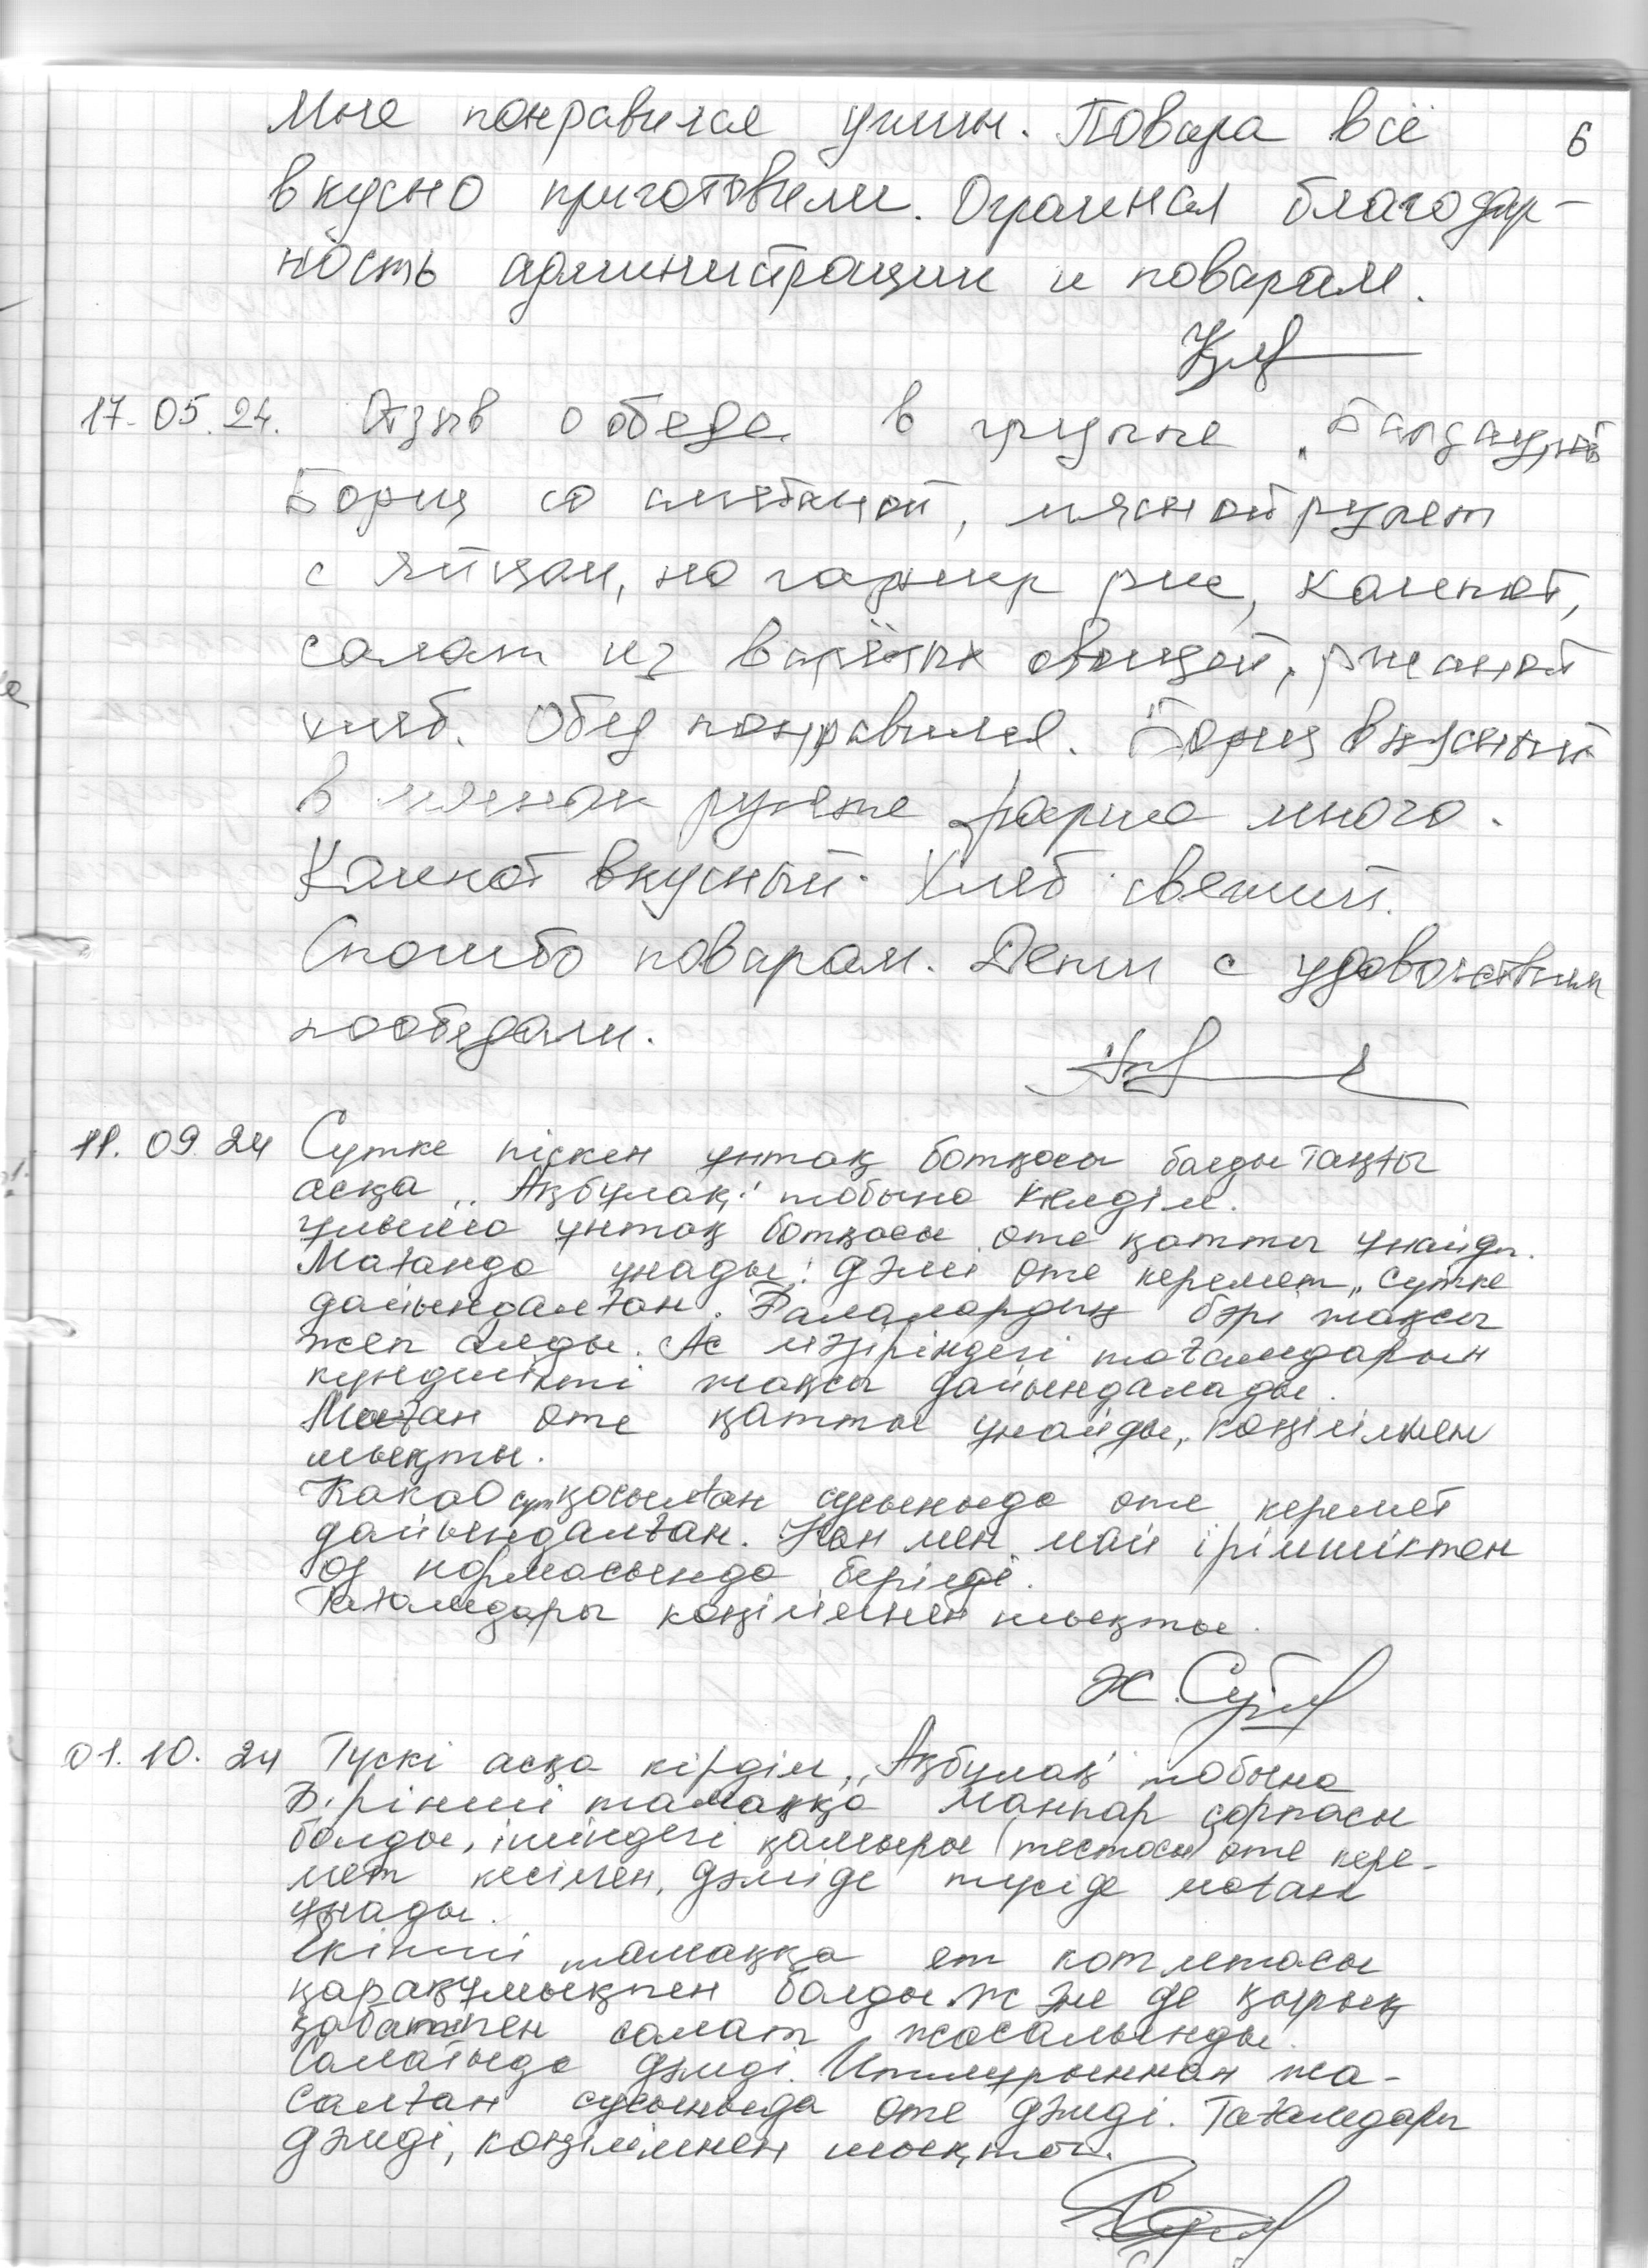 6
Мне понравился ужин. Повара всё
вкусно приготовили. Огромная благодар-
ность администрации и поварам.
17.05.24. Отзыв о обеде в группе „Балдаурен"
Борщ со сметаной, мясной рулет
с яйцом, на гарнир рис, компот,
салат из варёных овощей, ржаной
хлеб. Обед понравился. Борщ вкусный
в мясном рулете фарша много.
Компот вкусный. Хлеб свежий.
Спасибо поварам. Дети с удовольствием
пообедали.
11.09.24 Сутке піскен ұнтақ ботқасы болды таңғы
асқа „Ақбұлақ" тобына келдім.
ұнтақ ботқасы оте қатты ұнайды.
Мағанда ұнады! дәмі оте керемет, сутке
дайындалған. Балалардың бәрі жақсы
жеп алды. Ас мәзіріндегі тағамдарын
кунделікті жақсы дайындалады.
Маған оте қатты ұнайды, коңілімнен
шықты.
Какао сут қосылған сусыныда оте керемет
дайындалған. Нан мен май ірімшіктен
оз нормасында беріледі.
Тағамдары коңілімнен шықты.
Ж. Суйл
01.10.24 Тускі асқа кірдім, „Ақбұлақ" тобына
Бірінші тамаққа манпар сорпасы
болды, ішіндегі қамыры (тестосы) оте кере-
мет кесілген, дәміде тусіде маған
ұнады.
Екінші тамаққа ет котлетасы
қарақұмықпен болды. Және де қырық
қабатпен салат жасалынды.
Салатыда дәмді. Итмұрыннан жа-
салған сусыныда оте дәмді. Тағамдары
дәмді, коңілімнен шықты.